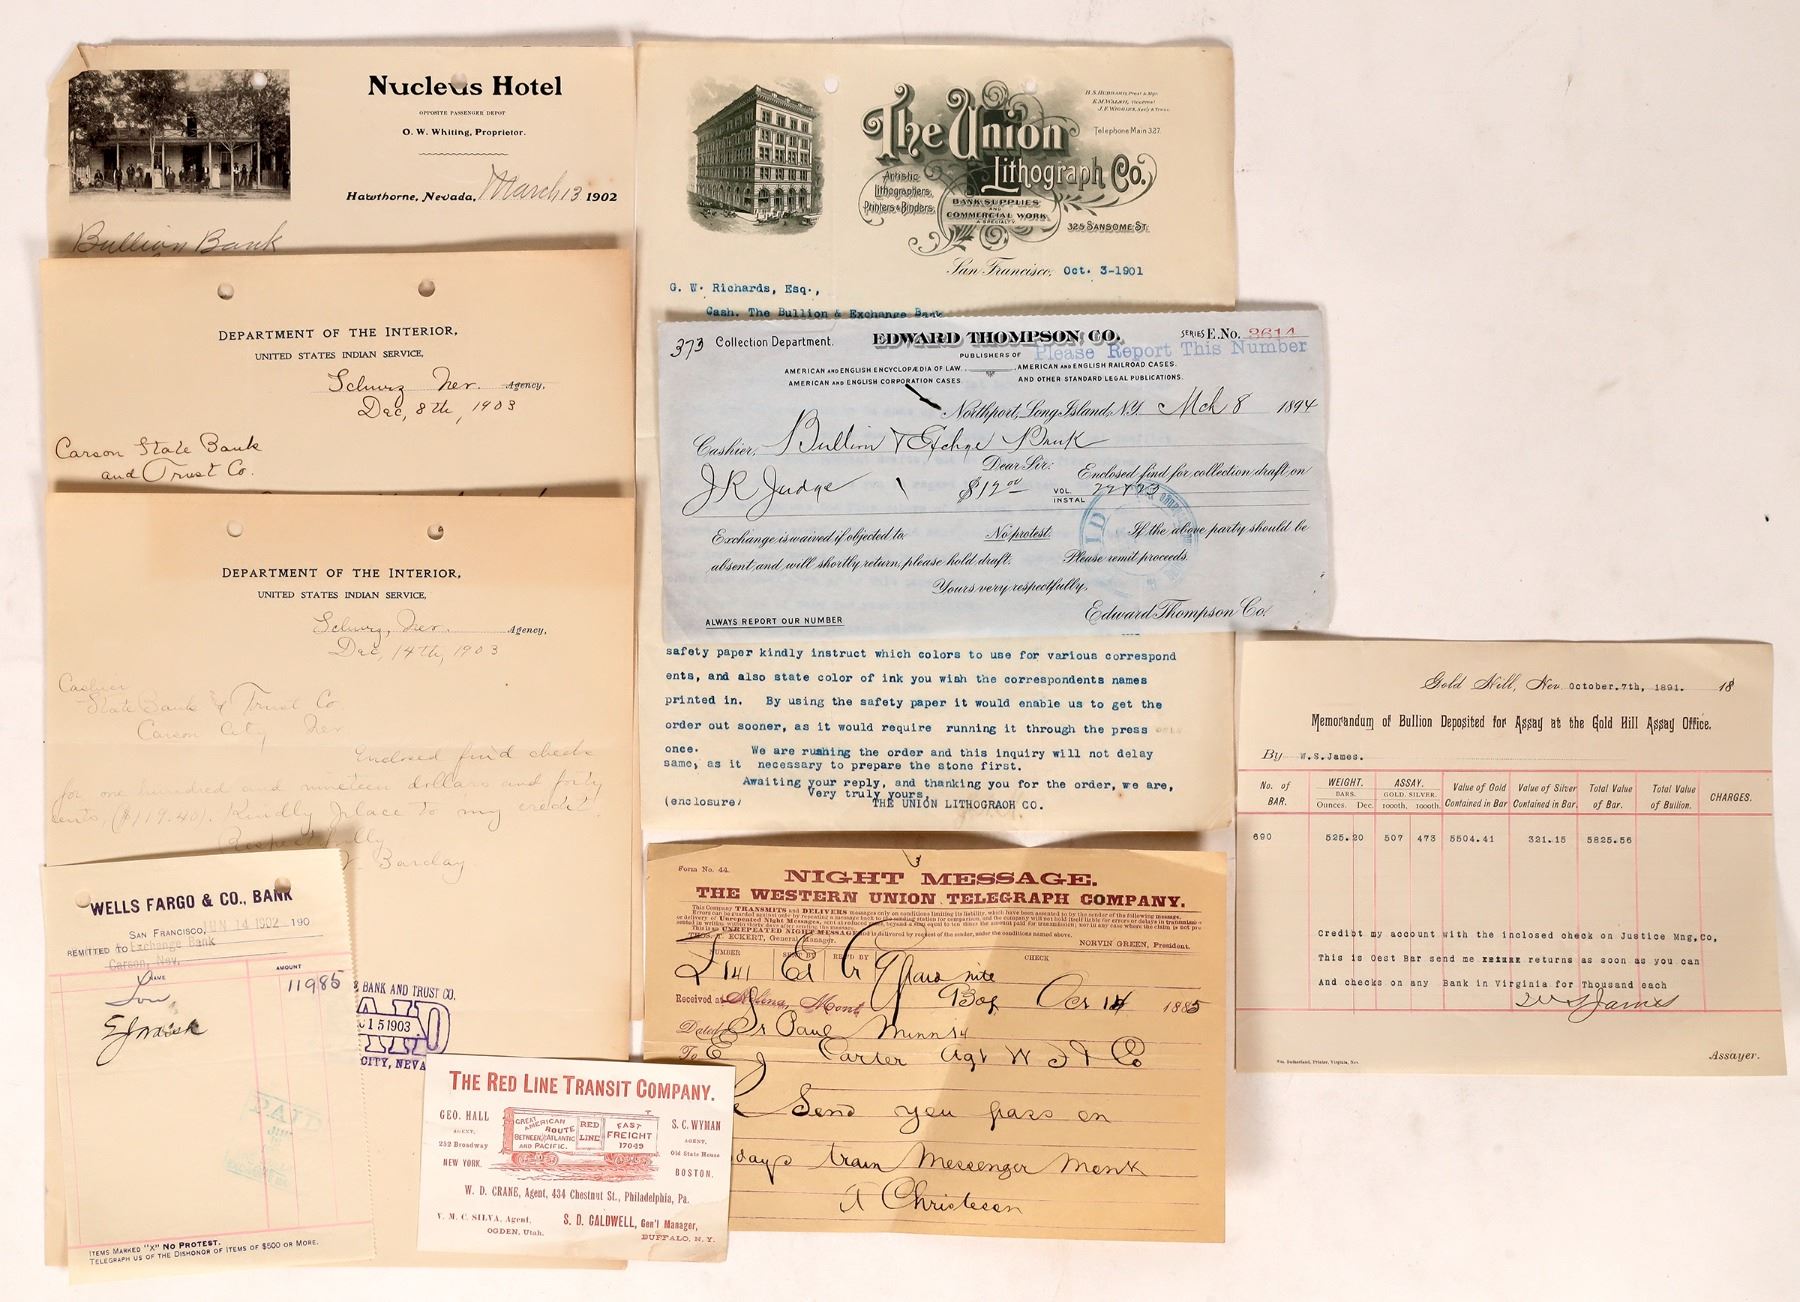 Nucleus Hotel
OPPOSITE PASSENGER DEPOT
O. W. Whiting, Proprietor.
Hawthorne, Nevada, March 13 1902
Bullion Bank
DEPARTMENT OF THE INTERIOR,
UNITED STATES INDIAN SERVICE,
Schurz Nev. Agency,
Dec, 8th, 1903
Carson State Bank
and Trust Co.
DEPARTMENT OF THE INTERIOR,
UNITED STATES INDIAN SERVICE,
Schurz, Nev. Agency,
Dec, 14th, 1903
Cashier
State Bank & Trust Co.
Carson City Nev
Enclosed find check
for one hundred and nineteen dollars and forty
cents, ($119.40). Kindly place to my credit.
Respectfully
Barclay
WELLS FARGO & CO., BANK
SAN FRANCISCO, JUN 14 1902 190
REMITTED to Exchange Bank
Carson, Nev.
NAME
AMOUNT
11985
PAID
ITEMS MARKED "X" NO PROTEST.
TELEGRAPH US OF THE DISHONOR OF ITEMS OF $500 OR MORE.
BANK AND TRUST CO.
15 1903
CITY, NEVA
The Union
Lithograph Co.
Artistic
Lithographers,
Printers & Binders,
BANK SUPPLIES
AND
COMMERCIAL WORK
A SPECIALTY
H. S. HUBBARD, Pres't & Mgr.
Telephone Main 327.
325 SANSOME ST.
San Francisco, Oct. 3-1901
G. W. Richards, Esq.,
Cash. The Bullion & Exchange Bank
373 Collection Department.
EDWARD THOMPSON CO.
SERIES E. No. 3614
Please Report This Number
PUBLISHERS OF
AMERICAN AND ENGLISH ENCYCLOPÆDIA OF LAW.
AMERICAN AND ENGLISH RAILROAD CASES.
AMERICAN AND ENGLISH CORPORATION CASES.
AND OTHER STANDARD LEGAL PUBLICATIONS.
Northport, Long Island, N.Y. Mch 8 1894
Cashier, Bullion & Exchge Bank
Dear Sir: Enclosed find for collection draft on
J R Judge $12 00 VOL. 22 & 23
INSTAL
Exchange is waived if objected to. No protest. If the above party should be
absent, and will shortly return, please hold draft. Please remit proceeds.
Yours very respectfully,
ALWAYS REPORT OUR NUMBER
Edward Thompson Co.
safety paper kindly instruct which colors to use for various correspond
ents, and also state color of ink you wish the correspondents names
printed in. By using the safety paper it would enable us to get the
order out sooner, as it would require running it through the press
once. We are rushing the order and this inquiry will not delay
same, as it necessary to prepare the stone first.
Awaiting your reply, and thanking you for the order, we are,
Very truly yours,
(enclosure) THE UNION LITHOGRAOH CO.
Form No. 44.
NIGHT MESSAGE.
THE WESTERN UNION TELEGRAPH COMPANY.
This Company TRANSMITS and DELIVERS messages only on conditions limiting its liability, which have been assented to by the sender of the following message.
This is an UNREPEATED NIGHT MESSAGE and is delivered by request of the sender, under the conditions named above.
THOS. T. ECKERT, General Manager.
NORVIN GREEN, President.
NUMBER SENT BY REC'D BY CHECK
Received at Helena, Mont Oct 14 1885
Dated St Paul Minn 14
To E J Carter Agt W F & Co
Send you pass on
days train Messenger Monk
A Christeson
THE RED LINE TRANSIT COMPANY.
GEO. HALL
AGENT,
252 Broadway
NEW YORK.
GREAT AMERICAN ROUTE
BETWEEN ATLANTIC
AND PACIFIC.
RED
LINE
FAST
FREIGHT
17049
S. C. WYMAN
AGENT,
Old State House
BOSTON.
W. D. CRANE, Agent, 434 Chestnut St., Philadelphia, Pa.
V. M. C. SILVA, Agent,
OGDEN, Utah.
S. D. CALDWELL, Gen'l Manager,
BUFFALO, N. Y.
Gold Hill, Nev. October.7th, 1891. 18
Memorandum of Bullion Deposited for Assay at the Gold Hill Assay Office.
By W.S.James.
No. of BAR.
WEIGHT.
BARS.
Ounces. Dec.
ASSAY.
GOLD. SILVER.
1000th. 1000th.
Value of Gold Contained in Bar
Value of Silver Contained in Bar.
Total Value of Bar.
Total Value of Bullion.
CHARGES.
690 525.20 507 473 5504.41 321.15 5825.56
Credibt my account with the inclosed check on Justice Mng,Co,
This is Oest Bar send me returns as soon as you can
And checks on any Bank in Virginia for Thousand each
W S James
Wm. Sutherland, Printer, Virginia, Nev.
Assayer.